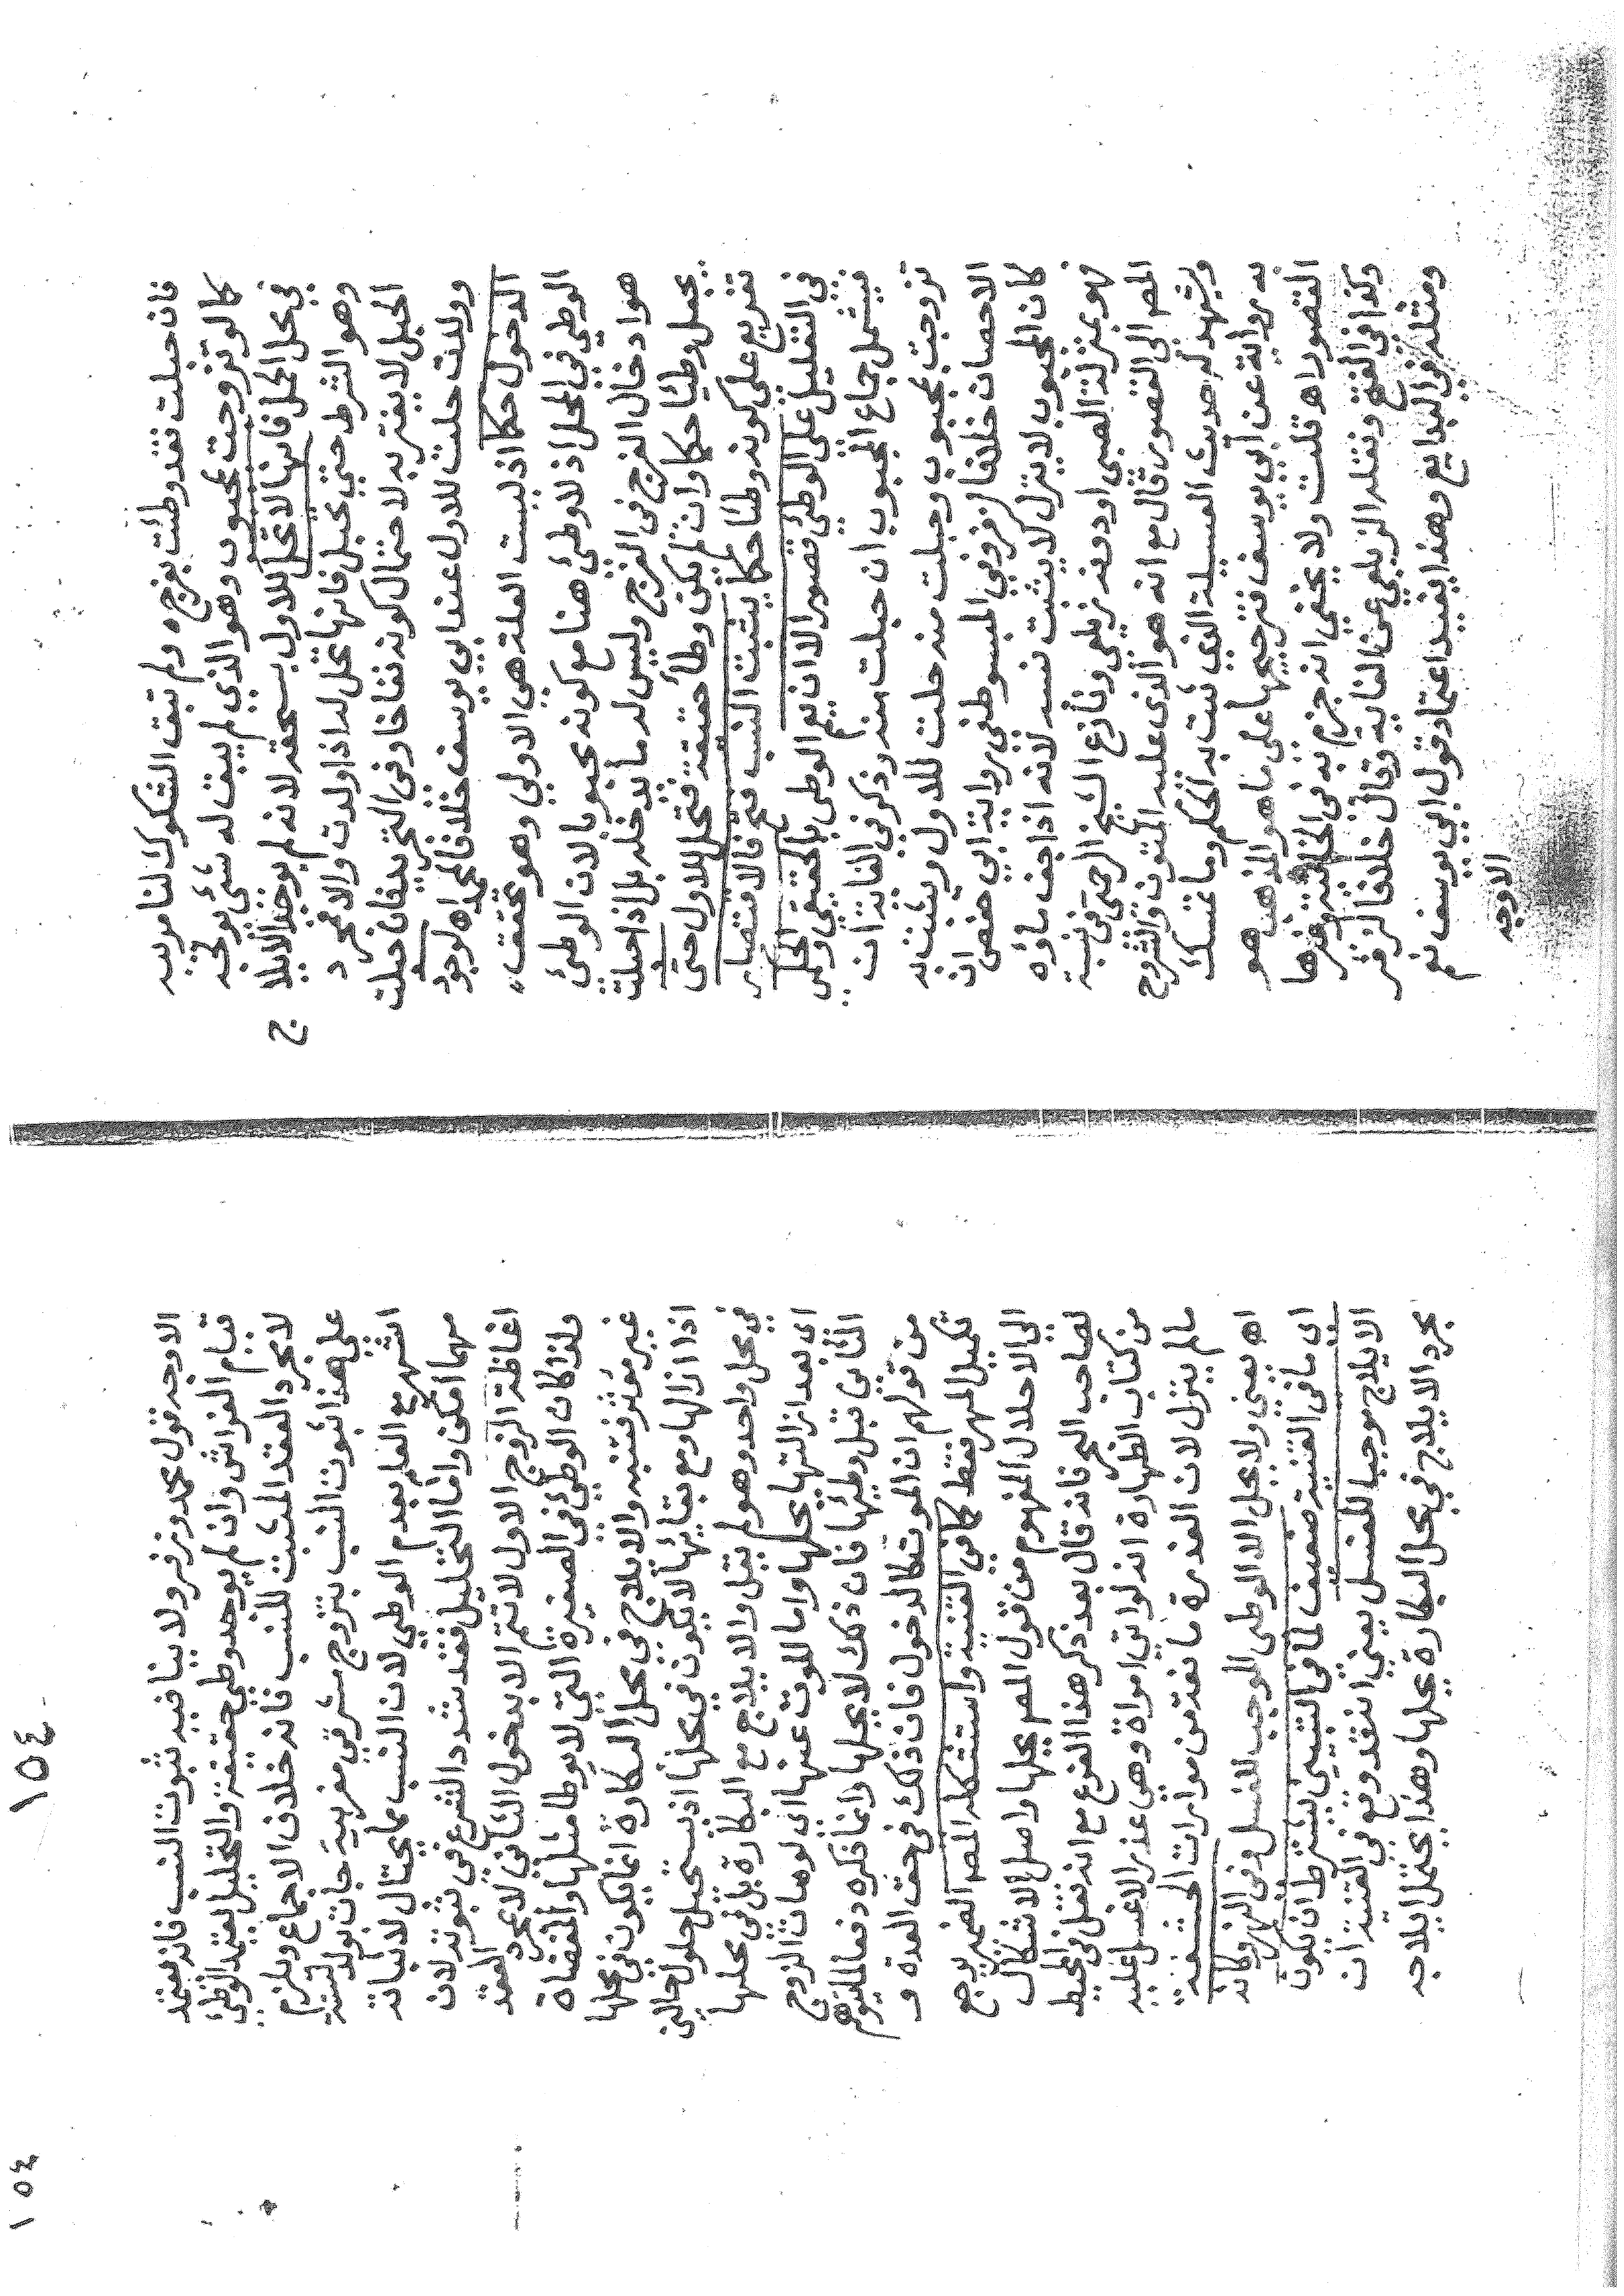 فان حبلت فقد وطئت بفرجه ولم تبق الشكوك لنا مريبه
كما لو تزوجت بمجبوب وهو الذي لم يبق له شئ يولجه
في محل الحل فانها لاتحل للاول بسحقه لانه لم يوجد الايلا
ج
وهو الشرط حتي تحبل فانها تحل له اذا ولدت والا فمجرد
الحبل لا يعتبر به لاحتمال كونه نفاخا وفى التجريد فان حبلت
وولدت حلت للاول عند ابي يوسف خلافا لمحمد اه لوجود
الدخول حكما اذ ليست العلة هي الاولي وهو تحقق
الوطئ في المحل اذ لا وطئ هنا مع كونه مجبوبا لان الوطئ
هو ادخال الفرج فى الفرج وليس له ما يدخله بل اذا حبلت
يجعل وطيا حكما وان لم يكن وطأ حقيقة فتحل للاول حتى
تفريع على كونه وطئا حكما يثبت النسب فتح فالاقتصار
في التعليل على الوطئ قصور الا ان يعم الوطى بالحقيقي والحكمى
فيشمل جماع المجبوب ان حبلت منه وذكر في الغاية ان
تزوجت بمجبوب وحبلت منه حلت للاول ويثبت به
الاحصان خلافا لزفر وفي المبسوط في رواية ابي حفص ان
كان المجبوب لا ينزل لا يثبت نسبه لانه اذا جف ماؤه
فهو بمنزلة الصبى او دونه زيلعى ونازع الشيخ الرحمتى في نسبة
المص الى القصور قال مع انه هو الذى عليه المتون والشروح
ويشهد له حديث العسيلة الذي ثبت به الحكم وما تمسك
به رواية عن أبي يوسف فترجيحها على ما هو المذهب هو
القصور اه قلت ولا يخفى انه جزم به فى الخلاصة وغيرها
وكذا فى الفتح ونقله الزيلعى عن الغاية وقال خلافا لزفر
ومثله في البدايع وهذا يفيد اعتماد قول ابي يوسف نعم
الاوجه
١٥٤
١٥٤
الاوجه قول محمد وزفر ولا ينافيه ثبوت النسب فانه يعتمد
قيام الفراش وان لم يوجد وطي حقيقة والتحليل يعتمد الوطئ
لا مجرد العقد المثبت للنسب فانه خلاف الاجماع ويلزم
على هذا ثبوت النسب بتزوج مشرقي مغربية جات بولد لستة
اشهر مع العلم بعدم الوطي لان النسب مما يحتال لاثباته
مهما امكن واما التحليل فقد شدد الشرع في ثبوته لان
اغاظة الزوج الاول لا تتم الا بدخول الثاني لا بمجرد العقد
ولذا كان الوطئ في الصغيرة التي لا يوطا مثلها والمفضاة
غير معتبر فتنبه والايلاج في محل البكارة انما يكون في محلها
اذا ازالها ومع بقائها لا يكون في محلها اذ يستحيل حلول حالين
في محل واحد وهو لم يقل والايلاج مع البكارة بل في محلها
اى بعد ازالتها يحلها واما الموت عنها اى لو مات الزوج
الثانى قبل وطيها فان ذلك لا يحلها وانما ذكره دفعا لما يتوهم
من قولهم ان الموت كالدخول فان ذلك في حق العدة و
تكميل المهر فقط كما في القنية واستشكله المصر الضمير يرجع
الى الاحلال المفهوم من قول المصر يحلها واصل الاشكال
لصاحب البحر فانه قال بعد ذكر هذا الفرع مع انه نقل في المحيط
من كتاب الطهارة انه لو اتى امراة وهى عذرا لا غسل عليه
مالم ينزل لان العذرة مانعة من مواراة الحشفة
اه يعني ولا يحل الا الوطى الموجب للغسل وفى النهر وكانه
اى ما فى القنية ضعيف لما فى التبيين يشترط ان يكون
الايلاج موجبا للغسل يعني انه قد وقع في القنية ان
مجرد الايلاج في محل البكارة يحلها وهذا يحتمل ايلاجه